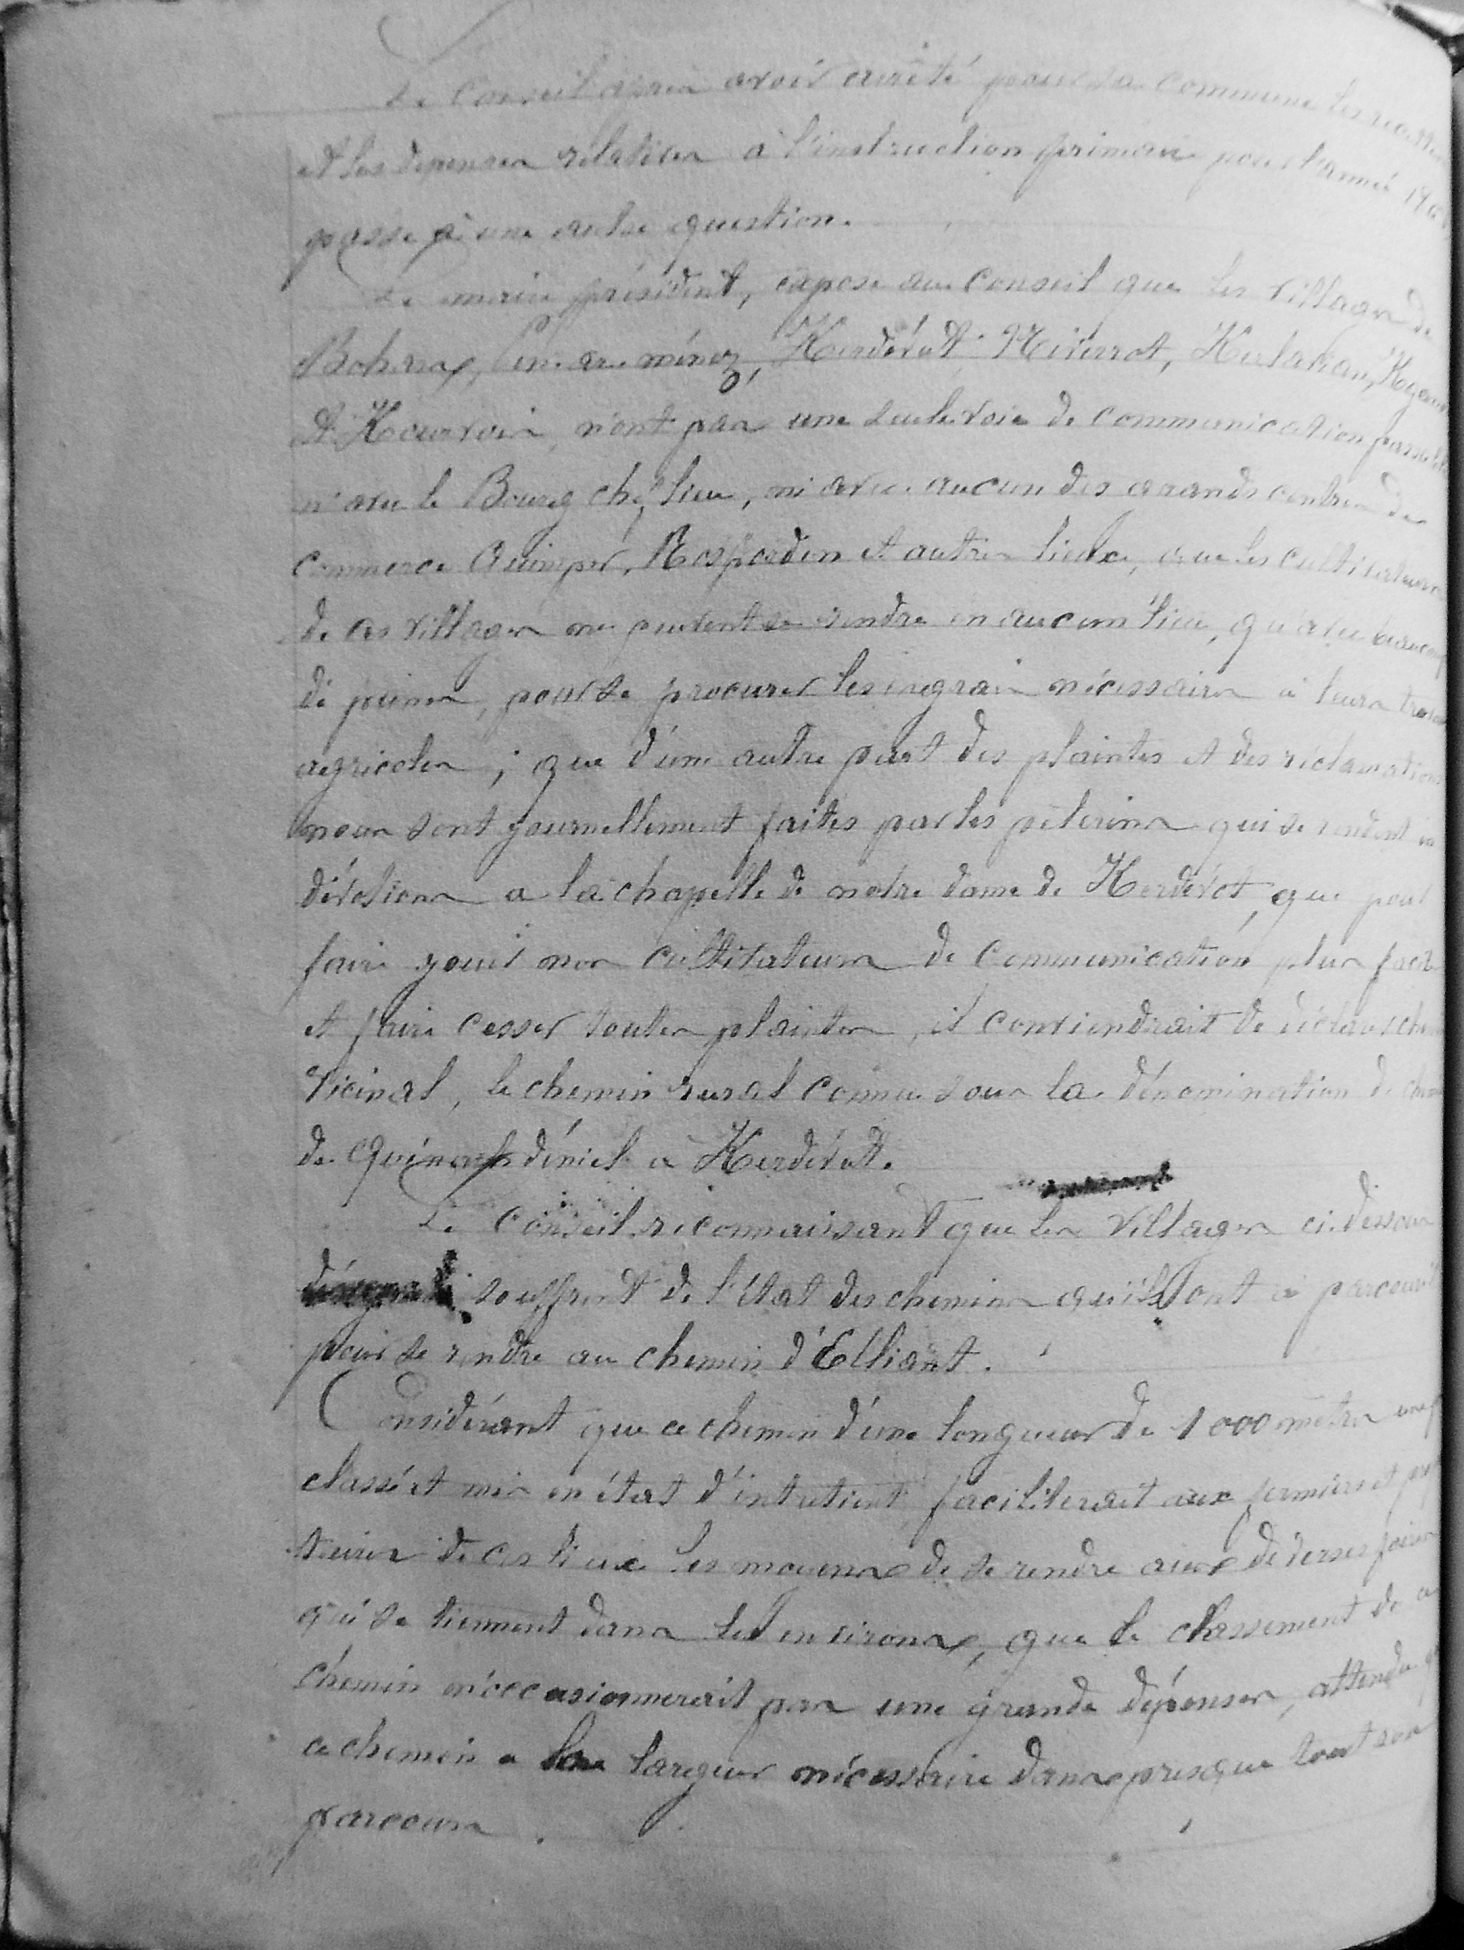 Le Conseil après avoir arrêté pour sa commune les recettes
et les depenses relatives a l'instruction primaire pour l'année
passe à une autre question.
Le maire président, expose au Conseil que les villages de
Menez, Kerdévot, Niverrot,
et Kourvois, n'ont pas une seule voie de communication passable
ni avec le Bourg chef lieu, ni avec aucun des grands centres de
commerce Quimper, Rosporden et autres lieux, que les cultivateurs
de ces villages ne peuvent se rendre en aucun lieu, qu'avec beaucoup
de peines, pour se procurer les engrais nécessaires à leurs travaux
agricoles ; que d'une autre part des plaintes et des réclamations
nous sont journellement faites par les pélerins qui se rendent en
dévotions a la chapelle de notre dame de Kerdévot, que pour
faire jouir nos cultivateurs de communication plus facile
et faire cesser toutes plaintes, il conviendrait de déclarer chemin
vicinal, le chemin rural connu sous la dénomination de chemin
de Quénach déniel à Kerdévot.
Le Conseil reconnaissant que les villages ci-dessous
désignés souffrent de l'état des chemins qu'ils ont à parcourir
pour se rendre au chemin d'Elliant.
Considérant que ce chemin d'une longueur de 1000 mètres
classé et mis en état d'intretient, faciliterait aux fermiers et
taires de ces lieux les moyens de se rendre aux diverses foires
qui se tiennent dans les environs, que le classement de ce
chemin n'occasionnerait pas une grande dépenses, attendu que
ce chemin a la largeur nécessaire dans presque tout son
parcours.